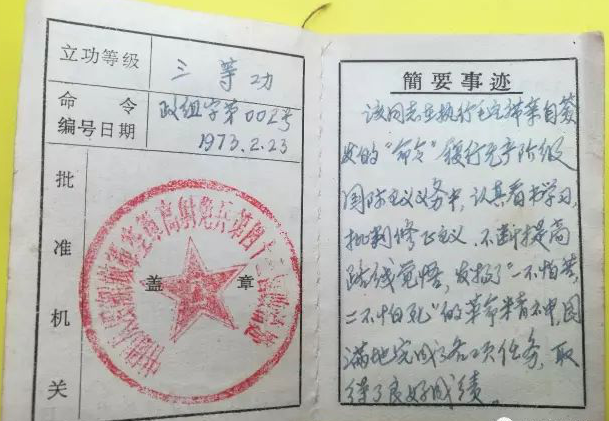 立功等级
三等功
命令
编号日期
政组字第002号
1973.2.23
批准机关
盖章
简要事迹
该同志在执行毛主席亲自签
发的“命令”履行无产阶级
国际主义义务中，认真看书学习，
批判修正主义，不断提高
路线觉悟，发扬了“一不怕苦，
二不怕死”的革命精神，圆
满地完成了各项任务，取
得了良好成绩。